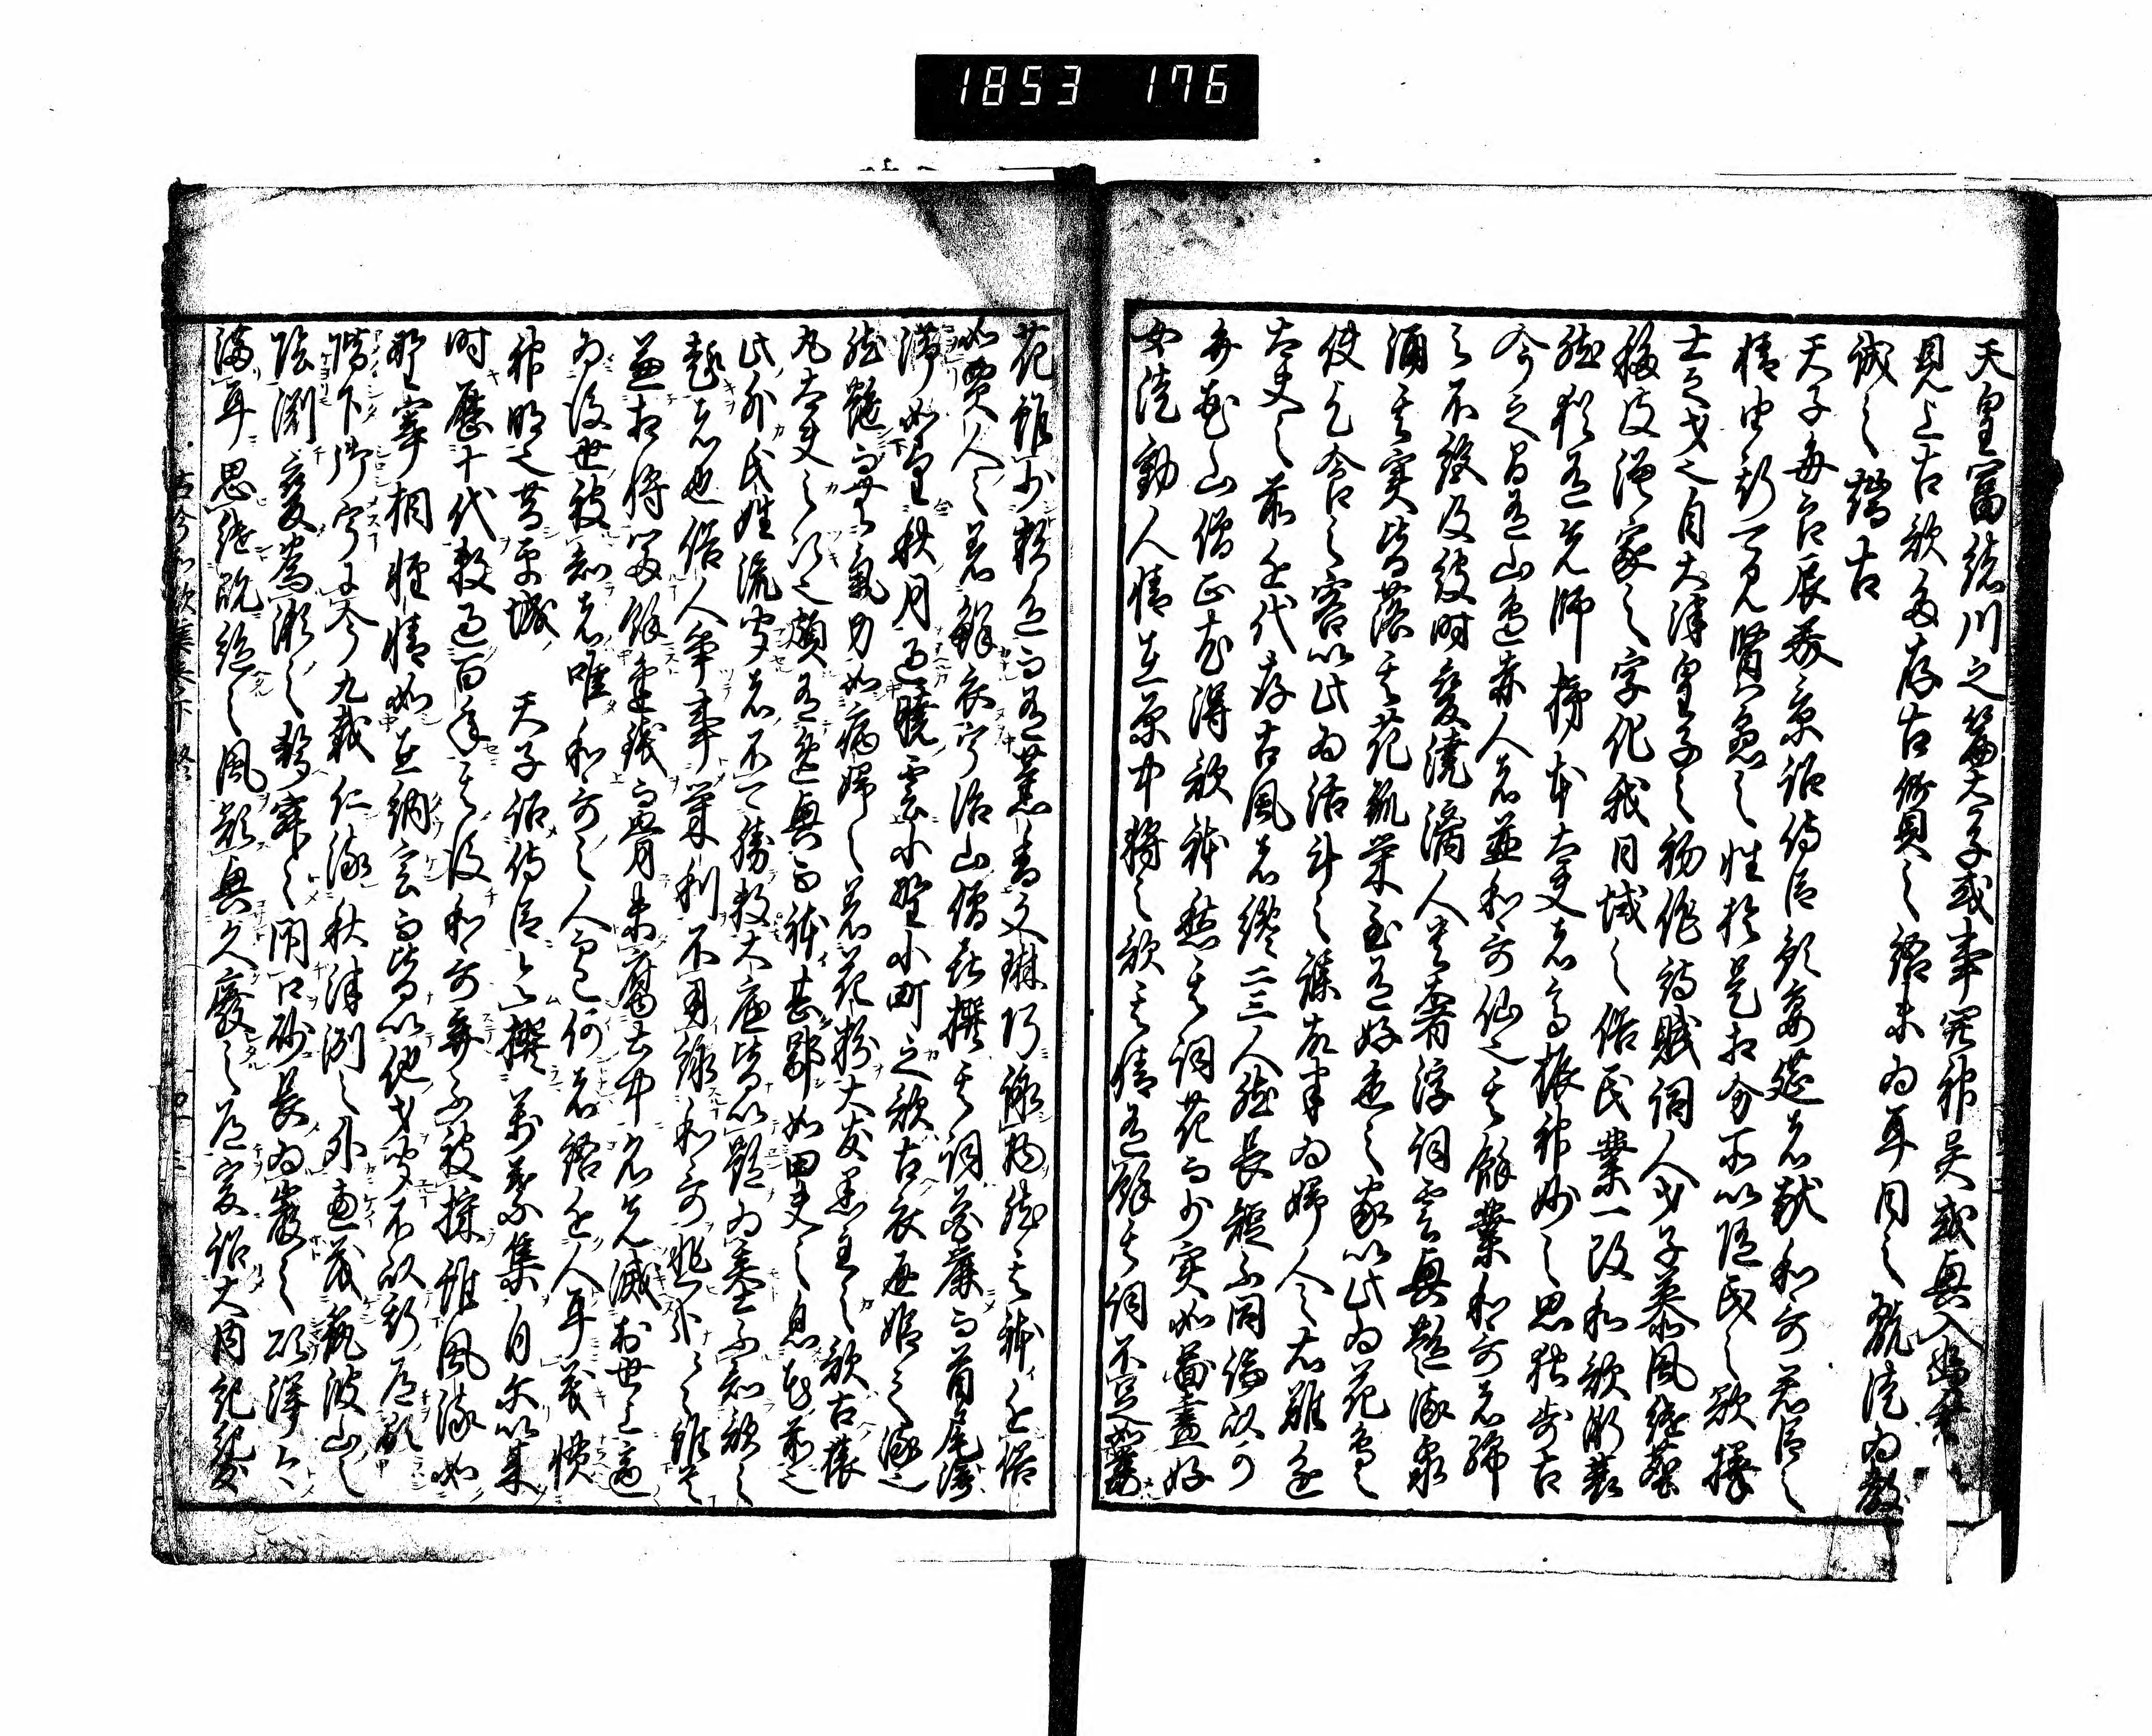 天皇富緒川之篇太子或事関神異或興入幽玄
見上古歌多存古質之語未為耳目之翫徒為教
誡之端古
天子毎良辰美景詔侍臣預宴莚者献和歌君臣之
情由斯可見賢愚之性於是相分所以随民之欲擇
士之才也自大津皇子之初作詩賦詞人才子慕風継塵
移彼漢家之字化我日域之俗民業一改和歌漸衰
然猶有先師柿本大夫者高振神妙之思独歩古
今之間有山邊赤人者並和歌仙也其餘業和歌者綿
々不絶及彼時變澆漓人貴奢淫浮詞雲興艶流泉
涌其實皆落其花孤榮至有好色之家以此為花鳥之
使乞食之客以此為活計之謀故半為婦人之右難進
大夫之前近代存古風者纔二三人然長短不同論以可
弁花山僧正尤得歌体然其詞花而少實如圖畫好
女徒動人情在原中将之歌其情有餘其詞不足如萎
花雖少彩色而有薫香文琳巧詠物然其体近俗
如賈人之着鮮衣宇治山僧喜撰其詞花麗而首尾停
滞如望秋月遇暁雲小野小町之歌古衣通姫之流也
然艶而無氣力如病婦之着花粉大友黒主之歌古猿
丸大夫之次也頗有逸興而体甚鄙如田夫之息花前也
此外氏姓流聞者不可勝数大底皆以艶為基不知歌之
趣者也俗人争事榮利不用詠和歌悲哉々々雖貴
兼相将冨餘金銭而骨未腐土中名先滅於世上適
為後世被知者唯和歌之人而已何者語近人耳義慣
神明也昔平城 天子詔侍臣令撰萬葉集自尓以来
時歴十代数過百年其後和歌弃不被採雖風流如
野宰相雅情如在納言而皆以他才聞不以斯道顕
階下御宇于今九載仁流秋津洲之外恵茂筑波山之
陰淵變為瀬之聲寂々閇口砂長為巌之頌洋々
満耳思継既絶之風欲興久廢之道爰詔大内記紀友
古今和歌集巻下 終
1853 176